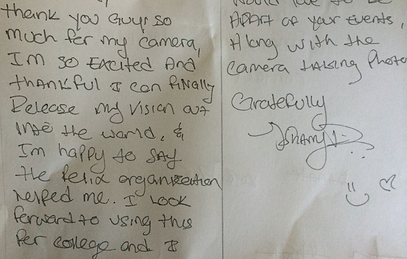 thank you Guys so
much for my camera,
I'm so Excited And
thankful I can finally
Release my vision out
into the world, &
I'm happy to say
the felix organization
helped me. I look
forward to using this
for college and I
would love to be
APART of your Events,
Along with the
camera taking Photo
Gratefully